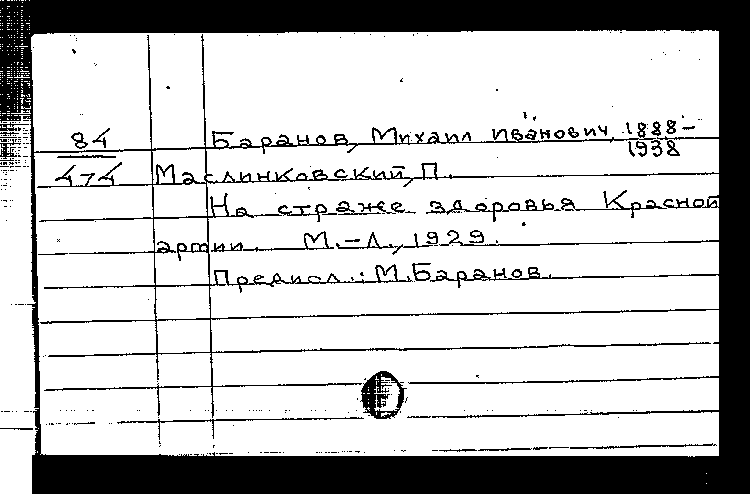 84 Баранов, Михаил Иванович, 1888-1938
474 Маслинковский, П.
На страже здоровья Красной
армии. М.-Л., 1929.
Предисл.: М. Баранов.